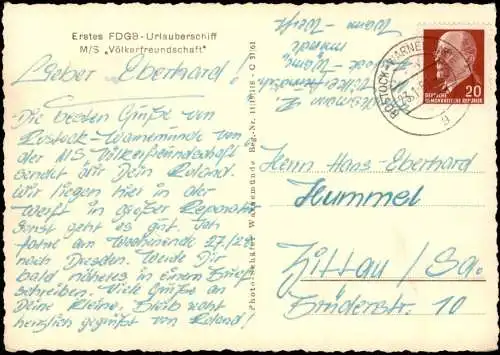 Erstes FDGB-Urlauberschiff
M/S „Völkerfreundschaft"
Lieber Eberhard!
Die besten Grüße von
Rostock-Warnemünde von
der MS Völkerfreundschaft
sendet dir Dein Roland.
Wir liegen hier in der
Werft in großer Reparatur
Sonst geht es gut. Ich
fahre am Wochenende 27./28.
nach Dresden. Werde Dir
bald näheres in einem Brief
schreiben. Viele Grüße an
Deine Kleine. Bleib
herzlich gegrüßt von Roland!
Photo-Schäfer Warnemünde Reg.-Nr.
DEUTSCHE
DEMOKRATISCHE REPUBLIK
20
ROSTOCK-WARNEM
g
Warn.-Werft
münde
Herrn Hans-Eberhard
Hummel
Zittau/Sa.
Brüderstr. 10